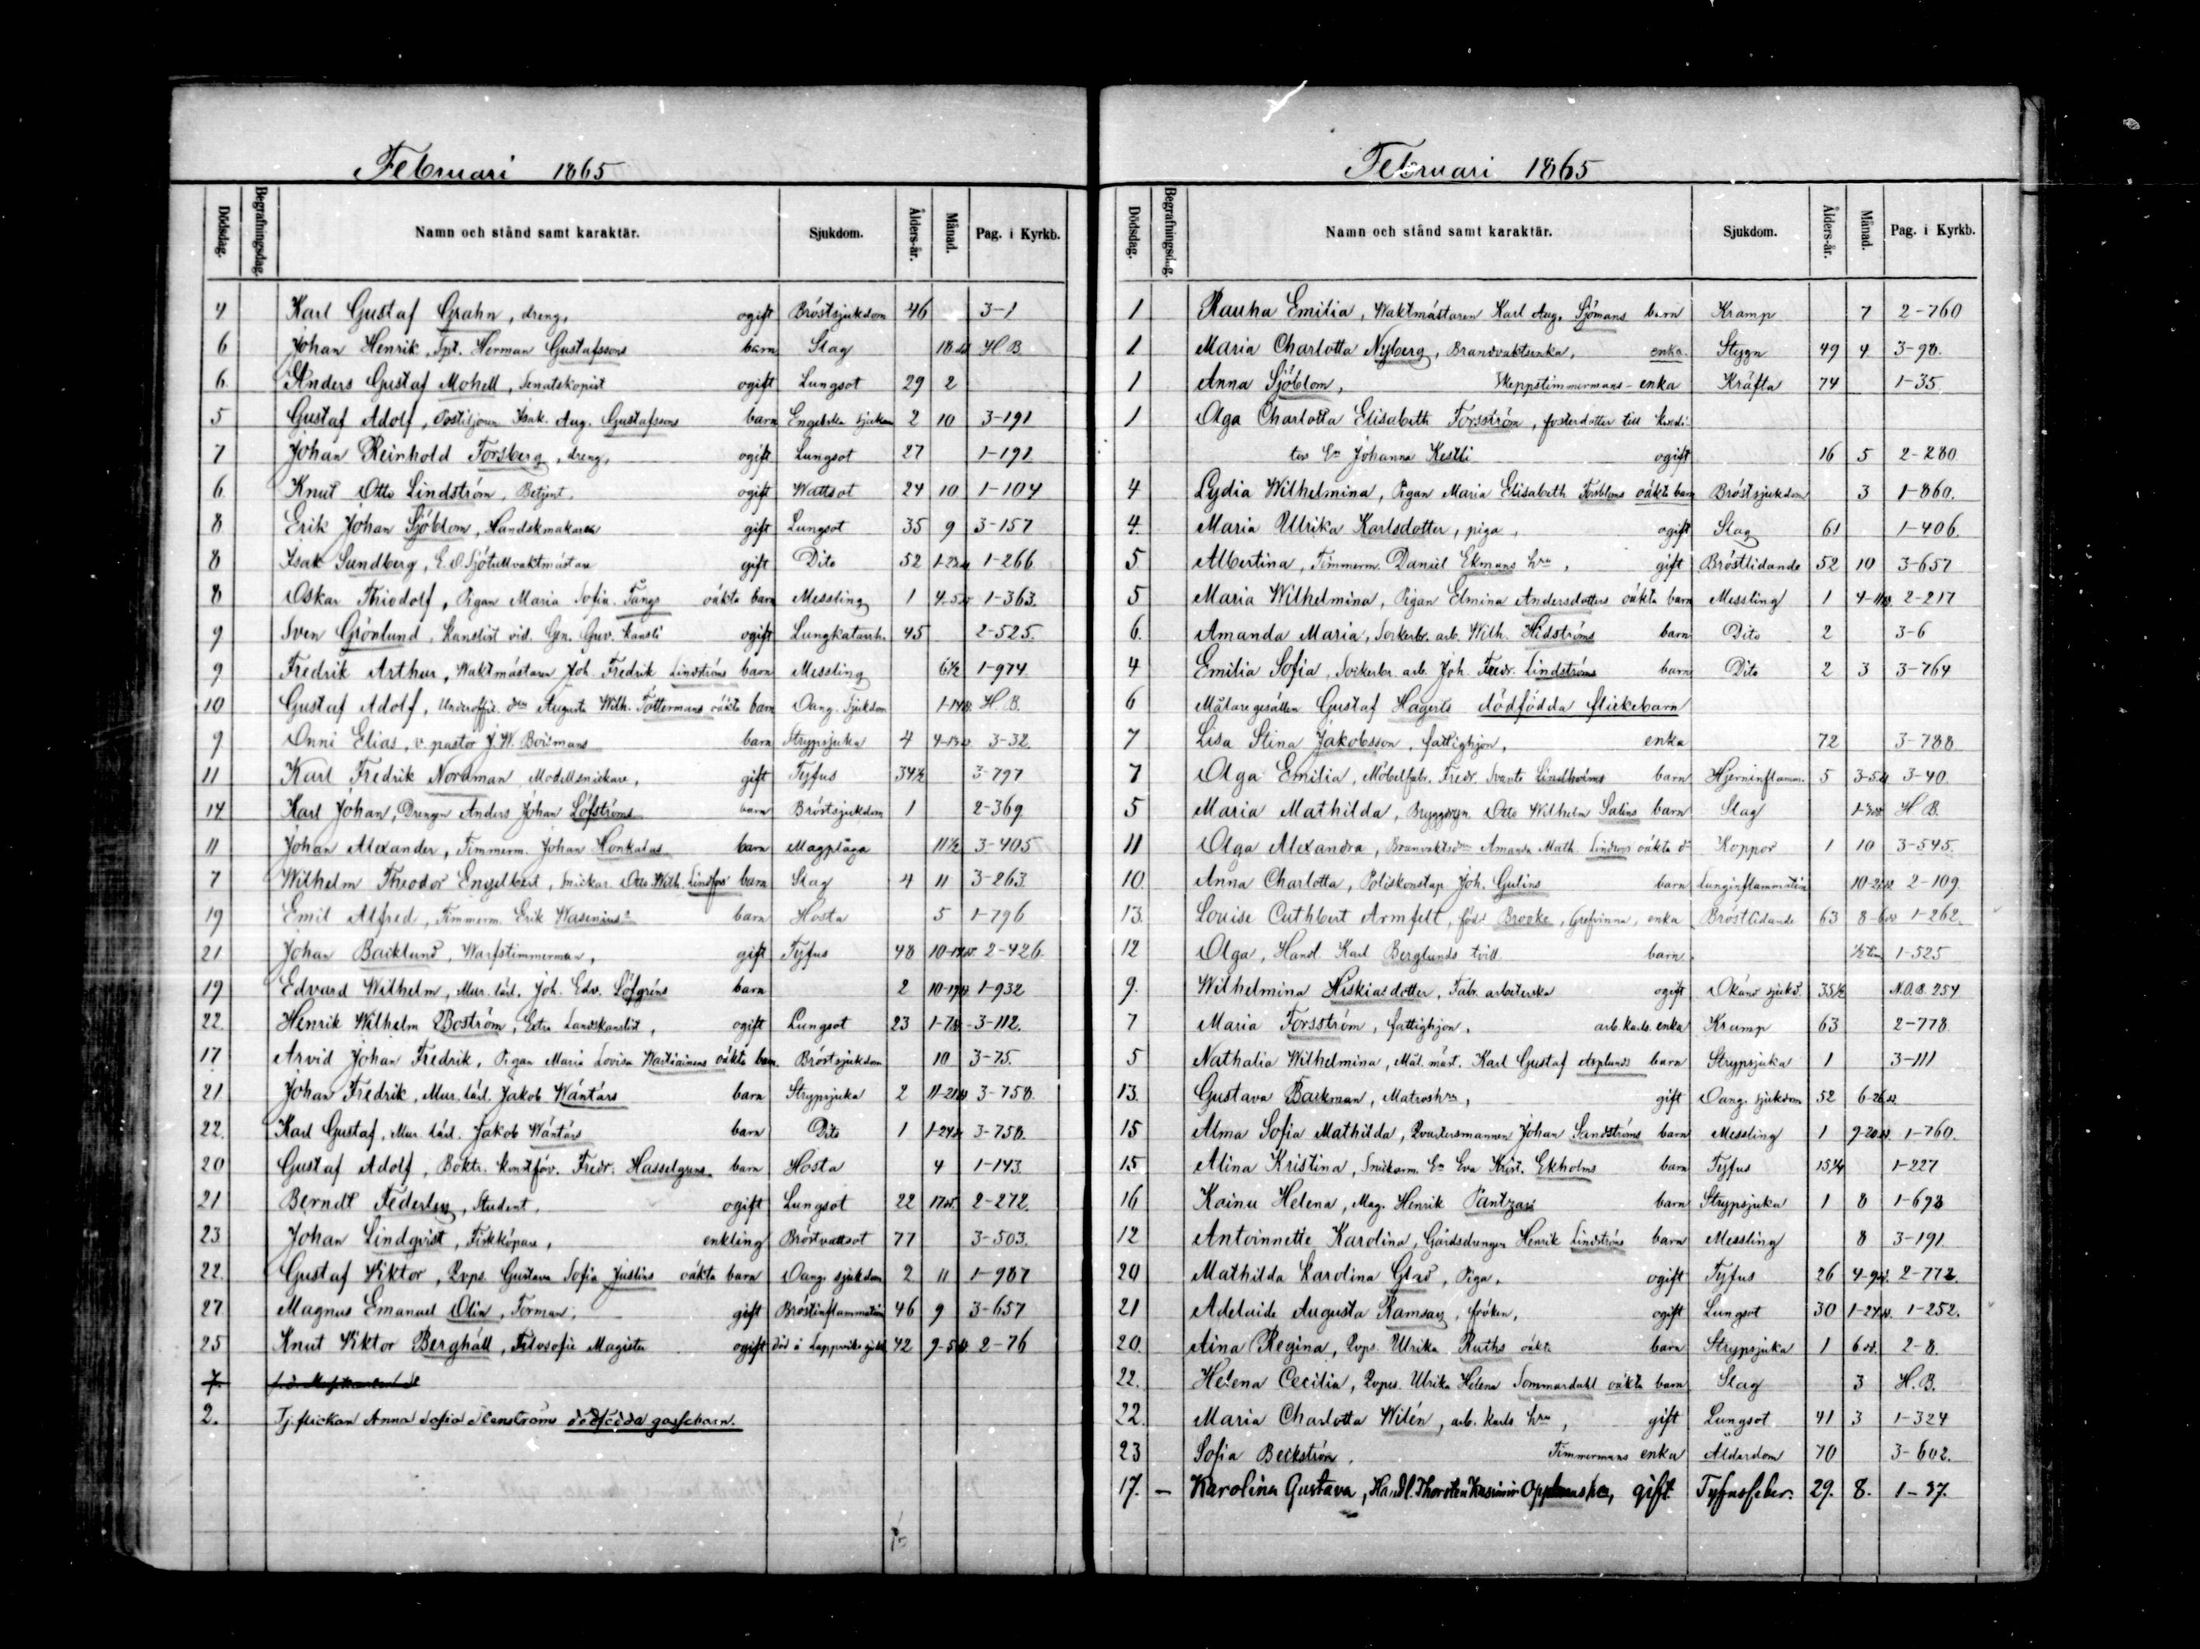 Februari 1865
Dödsdag. Begrafningsdag. Namn och stånd samt karaktär. Sjukdom. Ålders-år. Månad. Pag. i Kyrkb.
4 Karl Gustaf Grahn, dreng, ogift Bröstsjukdom 46 3-1
6 Johan Henrik, Herman Gustafssons barn Slag H B
6. Anders Gustaf Mohell, Senatskopist ogift Lungsot 29 2
5 Gustaf Adolf, Postiljonen Isak. Aug. Gustafssons barn Engelska sjukan 2 10 3-191
7 Johan Reinhold Forsberg, dreng, ogift Lungsot 27 1-191
6. Knut Otto Lindström, Betjent, ogift Wattsot 24 10 1-104
8 Erik Johan Sjöblom, Handskmakaren gift Lungsot 35 9 3-157
8 Isak Sundberg, E. O. Sjötullvaktmästare gift Dito 52 1-266
8 Oskar Thiodolf, Pigan Maria Sofia Fångs oäkta barn Messling 1 1-363.
9 Sven Grönlund, Kanslist vid. Gn. Guv. Kansli ogift Lungkatarrh. 45 2-525.
9 Fredrik Arthur, Waktmästaren Joh. Fredrik Lindströms barn Messling 6½ 1-974
10 Gustaf Adolf, Augusta Wilh. Tottermans oäkta barn Oang. Sjukdom H. B.
9 Onni Elias, v. pastor J. W. Boismans barn Strypsjuka 4 3-32
11 Karl Fredrik Nordman, Modellsnickare, gift Tyfus 34½ 3-797
14 Karl Johan, Drengen Anders Johan Löfströms barn Bröstsjukdom 1 2-369
11 Johan Alexander, Timmerm. Johan Honkalas barn Magplåga 11½ 3-405
7 Wilhelm Theodor Engelbert, Snickar. Otto Wilh. Lindfors barn Slag 4 11 3-263
19 Emil Alfred, Timmerm. Erik Wasenius barn Hosta 5 1-796
21 Johan Backlund, Warfstimmerman, gift Tyfus 48 2-426.
19 Edvard Wilhelm, Mur. lärl. Joh. Edv. Löfgréns barn 2 1-932
22. Henrik Wilhelm Boström, Extra Landskanslist, ogift Lungsot 23 3-112.
17 Arvid Johan Fredrik, Pigan Maria Lovisa Wartiainens oäkta barn. Bröstsjukdom 10 3-75.
21 Johan Fredrik, Mur. lärl. Jakob Wäntärs barn Strypsjuka 2 3-758.
22. Karl Gustaf, Mur. lärl. Jakob Wäntärs barn Dito 1 3-758.
20 Gustaf Adolf, Boktr. konstförv. Fredr. Hasselgrens barn Hosta 4 1-143.
21 Berndt Federley, Student, ogift Lungsot 22 2-272.
23 Johan Lindqvist, Fiskköpare, enkling Bröstvattsot 77 3-503.
22. Gustaf Viktor, Qvps. Gustava Sofia Juslins oäkta barn Oang. sjukdom 2 11 1-987
27 Magnus Emanuel Olin, Forman, gift Bröstinflammation 46 9 3-657
25 Knut Viktor Berghäll, Filosofie Magister ogift död å Lappviks sjukh. 42 2-76
7.
2. Tj. flickan Anna Sofia Stenströms dödfödda gossebarn.
Februari 1865
Dödsdag. Begrafningsdag. Namn och stånd samt karaktär. Sjukdom. Ålders-år. Månad. Pag. i Kyrkb.
1 Rauha Emilia, Waktmästaren Karl Aug. Sjömans barn Kramp 7 2-760
1 Maria Charlotta Nyberg, Brandvaktsenka, enka. Stygn 49 4 3-98.
1 Anna Sjöblom, Skeppstimmermans-enka Kräfta 74 1-35
1 Olga Charlotta Elisabeth Forsström, fosterdotter till Kondi-
tors En Johanna Kestli ogift 16 5 2-280
4 Lydia Wilhelmina, Pigan Maria Elisabeth Forsbloms oäkta barn Bröstsjukdom 3 1-860.
4. Maria Ulrika Karlsdotter, piga, ogift Slag 61 1-406
5 Albertina, Timmerm. Daniel Ekmans hru, gift Bröstlidande 52 10 3-657
5 Maria Wilhelmina, Pigan Elmina Andersdotters oäkta barn Messling 1 2-217
6. Amanda Maria, Sockerbr. arb. Wilh. Hidströms barn Dito 2 3-6
4 Emilia Sofia, Sockerbr. arb. Joh. Fredr. Lindströms barn Dito 2 3 3-764
6 Målaregesällen Gustaf Hagerts dödfödda flickebarn
7 Lisa Stina Jakobsson, fattighjon, enka 72 3-788
7 Olga Emilia, Möbelfabr. Fredr. Svante Lindholms barn Hjerninflamm. 5 3-40.
5 Maria Mathilda, Otto Wilhelm Salins barn Slag H B.
11 Olga Alexandra, Amanda Math. Lindroos oäkta d. Koppor 1 10 3-545
10. Anna Charlotta, Poliskonstap. Joh. Gulins barn Lunginflammation 2-109
13. Louise Cuthbert Armfelt, född Brooke, Grefvinna, enka Bröstlidande 63 1-262.
12 Olga, Handl. Karl Berglunds tvill. barn ½ tim. 1-525
9. Wilhelmina Hiskiasdotter, Fabr. arbeterska ogift Okänd sjukd. 35½ N.O.B. 254
7 Maria Forsström, fattighjon, arb. karls. enka Kramp 63 2-778
5 Nathalia Wilhelmina, Mål. mäst. Karl Gustaf Asplunds barn Strypsjuka 1 3-111
13. Gustava Backman, Matroshru, gift Oang. sjukdom 52
15 Alma Sofia Mathilda, Qvartersmannen Johan Sandströms barn Messling 1 1-760.
15 Alina Kristina, Snickarm. En Eva Krist. Ekholms barn Tyfus 15¼ 1-227
16 Kainu Helena, Mag. Henrik Pantzars barn Strypsjuka 1 8 1-693
12 Antoinnette Karolina, Gårdsdrengen Henrik Lindströms barn Messling 8 3-191
20 Mathilda Karolina Glad, Piga, ogift Tyfus 26 2-772.
21 Adelaide Augusta Ramsay, fröken, ogift Lungsot 30 1-252.
20. Aina Regina, Qvps. Ulrika Ruths oäkta barn Strypsjuka 1 2-8.
22. Helena Cecilia, Qvps. Ulrika Helena Sommardahl oäkta barn Slag 3 H. B.
22. Maria Charlotta Wilén, arb. karls hru, gift Lungsot 41 3 1-324
23 Sofia Beckström, Timmermans enka Ålderdom 70 3-602.
17. - Karolina Gustava, Handl. Thorsten Kasimir gift Tyfusfeber. 29. 8. 1-37.